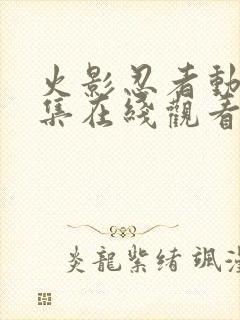 火影忍者動
集在綫觀看
炎龍紫緒 颯漫